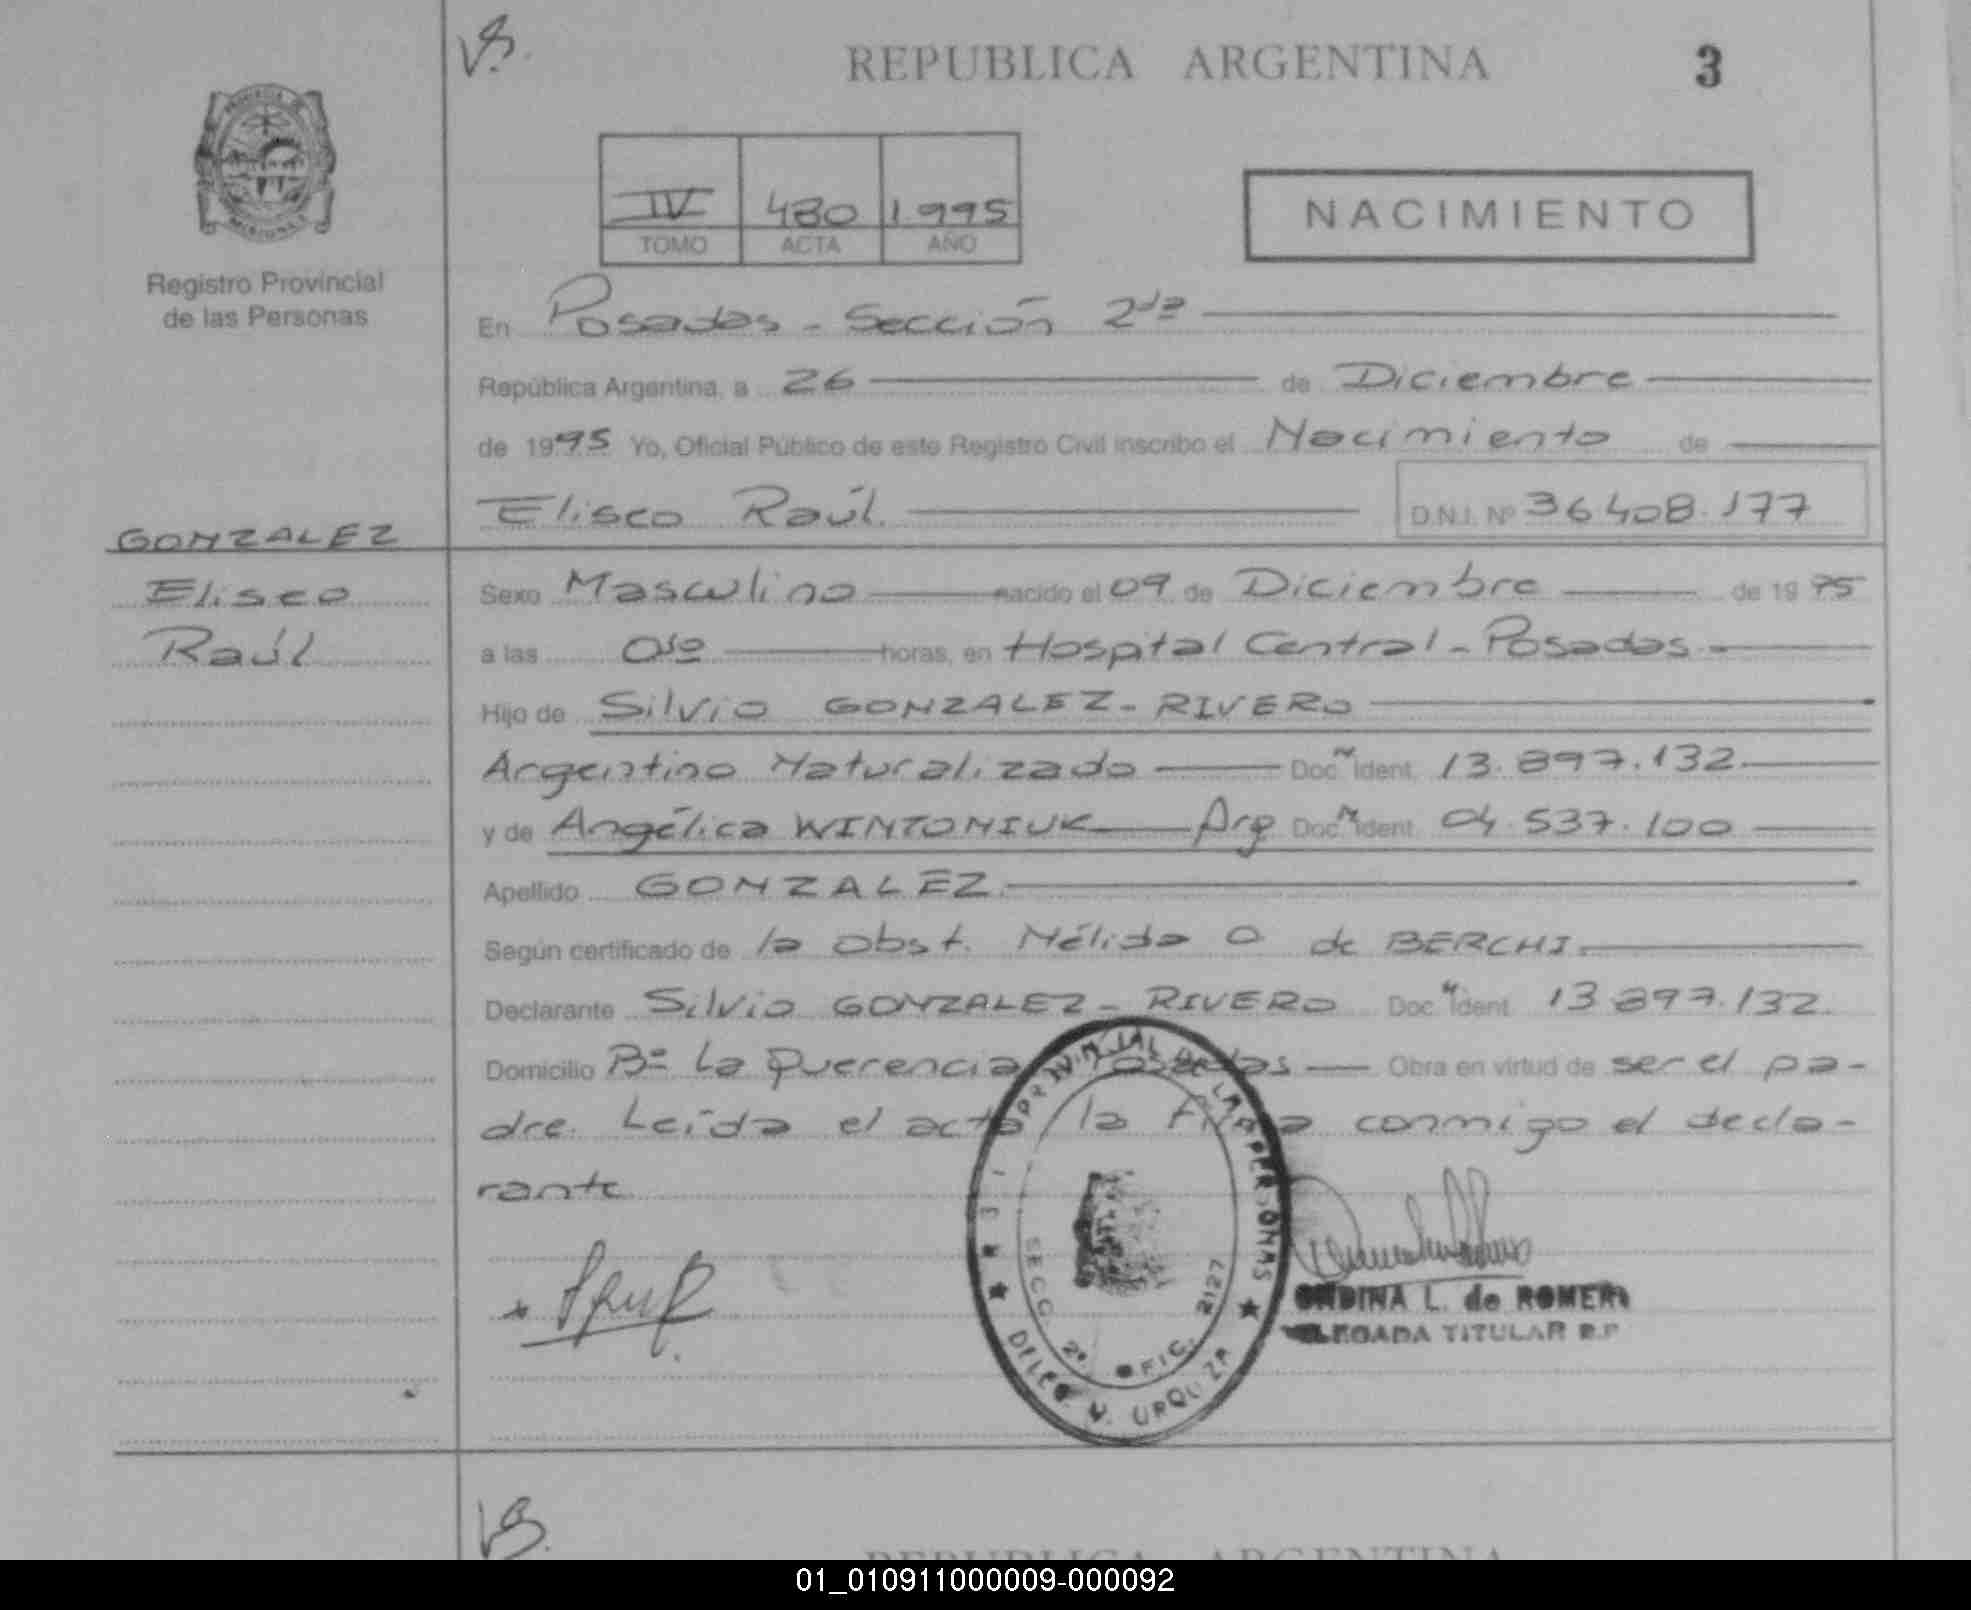 VB.
REPUBLICA ARGENTINA 3
IV 480 1.995
TOMO ACTA AÑO
NACIMIENTO
Registro Provincial
de las Personas
En Posadas - Sección 2da
República Argentina, a 26 de Diciembre
de 1995 Yo, Oficial Público de este Registro Civil inscribo el Nacimiento de
Eliseo Raúl. D.N.I. Nº 36408.177
GONZALEZ
Eliseo
Raúl
Sexo Masculino nacido el 09 de Diciembre de 1995
a las 0110 horas, en Hospital Central - Posadas
Hijo de Silvio GONZALEZ - RIVERO
Argentino Naturalizado Doc. Ident. 13.897.132
y de Angélica WINTONIUK Arg Doc. Ident. 04.537.100
Apellido GONZALEZ
Según certificado de la Obst. Nélida O de BERCHI.
Declarante Silvio GONZALEZ - RIVERO Doc. Ident. 13897.132.
Domicilio Bº La Querencia Posadas Obra en virtud de ser el pa-
dre. Leída el acta, la firma conmigo el decla-
rante
PROVINCIAL DE LAS PERSONAS
SECC. 2º OFIC. 2127
DELEG. V. URQUIZA
ONDINA L. de ROMERO
DELEGADA TITULAR R.P
VB.
REPUBLICA ARGENTINA
01_010911000009-000092